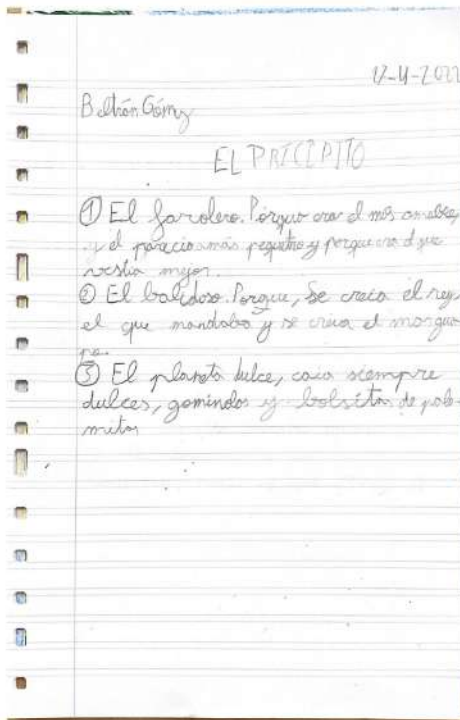 Beltrán Gómez
EL PRICIPITO
① El farolero. Porque era el más amable,
y el parecia más pequeño y porque era el que
vestia mejor.
② El balidoso. Porque, se creia el rey,
el que mandaba y se creia el mas gua
po.
③ El planeta dulce, caia siempre
dulces, gominolas y bolsitas de palo
mitas